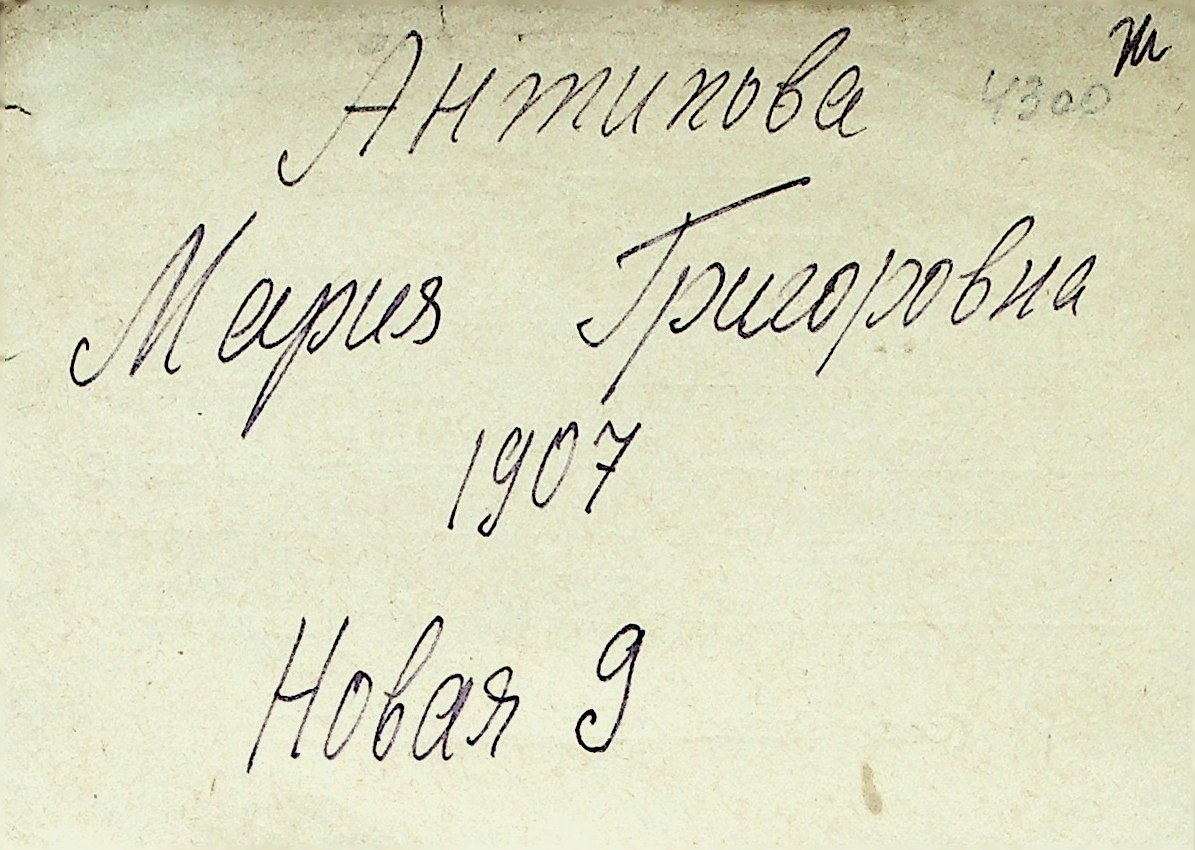 Антипова
4300 ж
Мария Григоровна
1907
Новая 9